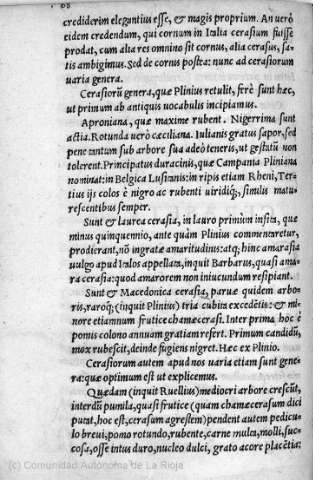 crediderim elegantius esse, & magis proprium. An uerò
eidem credendum, qui cornum in Italia cerasium fuisse
prodat, cum alia res omnino sit cornus, alia cerasus, sa-
tis ambigimus. Sed de cornus postea: nunc ad cerasiorum
uaria genera.
Cerasiorũ genera, quæ Plinius retulit, ferè sunt hæc,
ut primum ab antiquis uocabulis incipiamus.
Aproniana, quæ maxime rubent. Nigerrima sunt
actia. Rotunda uerò cæciliana. Iulianis gratus sapor, sed
pene tantum sub arbore sua adeò teneris, ut gestatũ non
tolerent. Principatus duracinis, quæ Campania Pliniana
nominat: in Belgica Lusitanis: in ripis etiam Rheni, Ter-
tius ijs colos è nigro ac rubenti uiridiq́;, similis matu-
rescentibus semper.
Sunt & laurea cerasia, in lauro primùm insita, quæ
minus quinquennio, ante quàm Plinius commentaretur,
prodierant, nõ ingratæ amaritudinis: atq; hinc amarasia
uulgo apud Italos appellata, inquit Barbarus, quasi ama-
ra cerasia: quod amarorem non iniucundum resipiant.
Sunt & Macedonica cerasia, paruæ quidem arbo-
ris, raroq́; (inquit Plinius) tria cubita excedẽtis: & mi-
nore etiamnum frutice chamæcerasi. Inter prima hoc è
pomis colono annuam gratiam refert. Primum candidũ,
mox rubescit, deinde fugiens nigret. Hæc ex Plinio.
Cerasiorum autem apud nos uaria etiam sunt gene-
ra: quæ optimum est ut explicemus.
Quædam (inquit Ruellius) mediocri arbore crescũt,
interdũ pumila, quasi frutice (quam chamæcerasum dici
putat, hoc est, cerasum agrestem) pendent autem pedicu-
lo breui, pomo rotundo, rubente, carne multa, molli, suc-
cosa, osse intus duro, nucleo dulci, grato acore placẽtia:
(c) Comunidad Autónoma de La Rioja